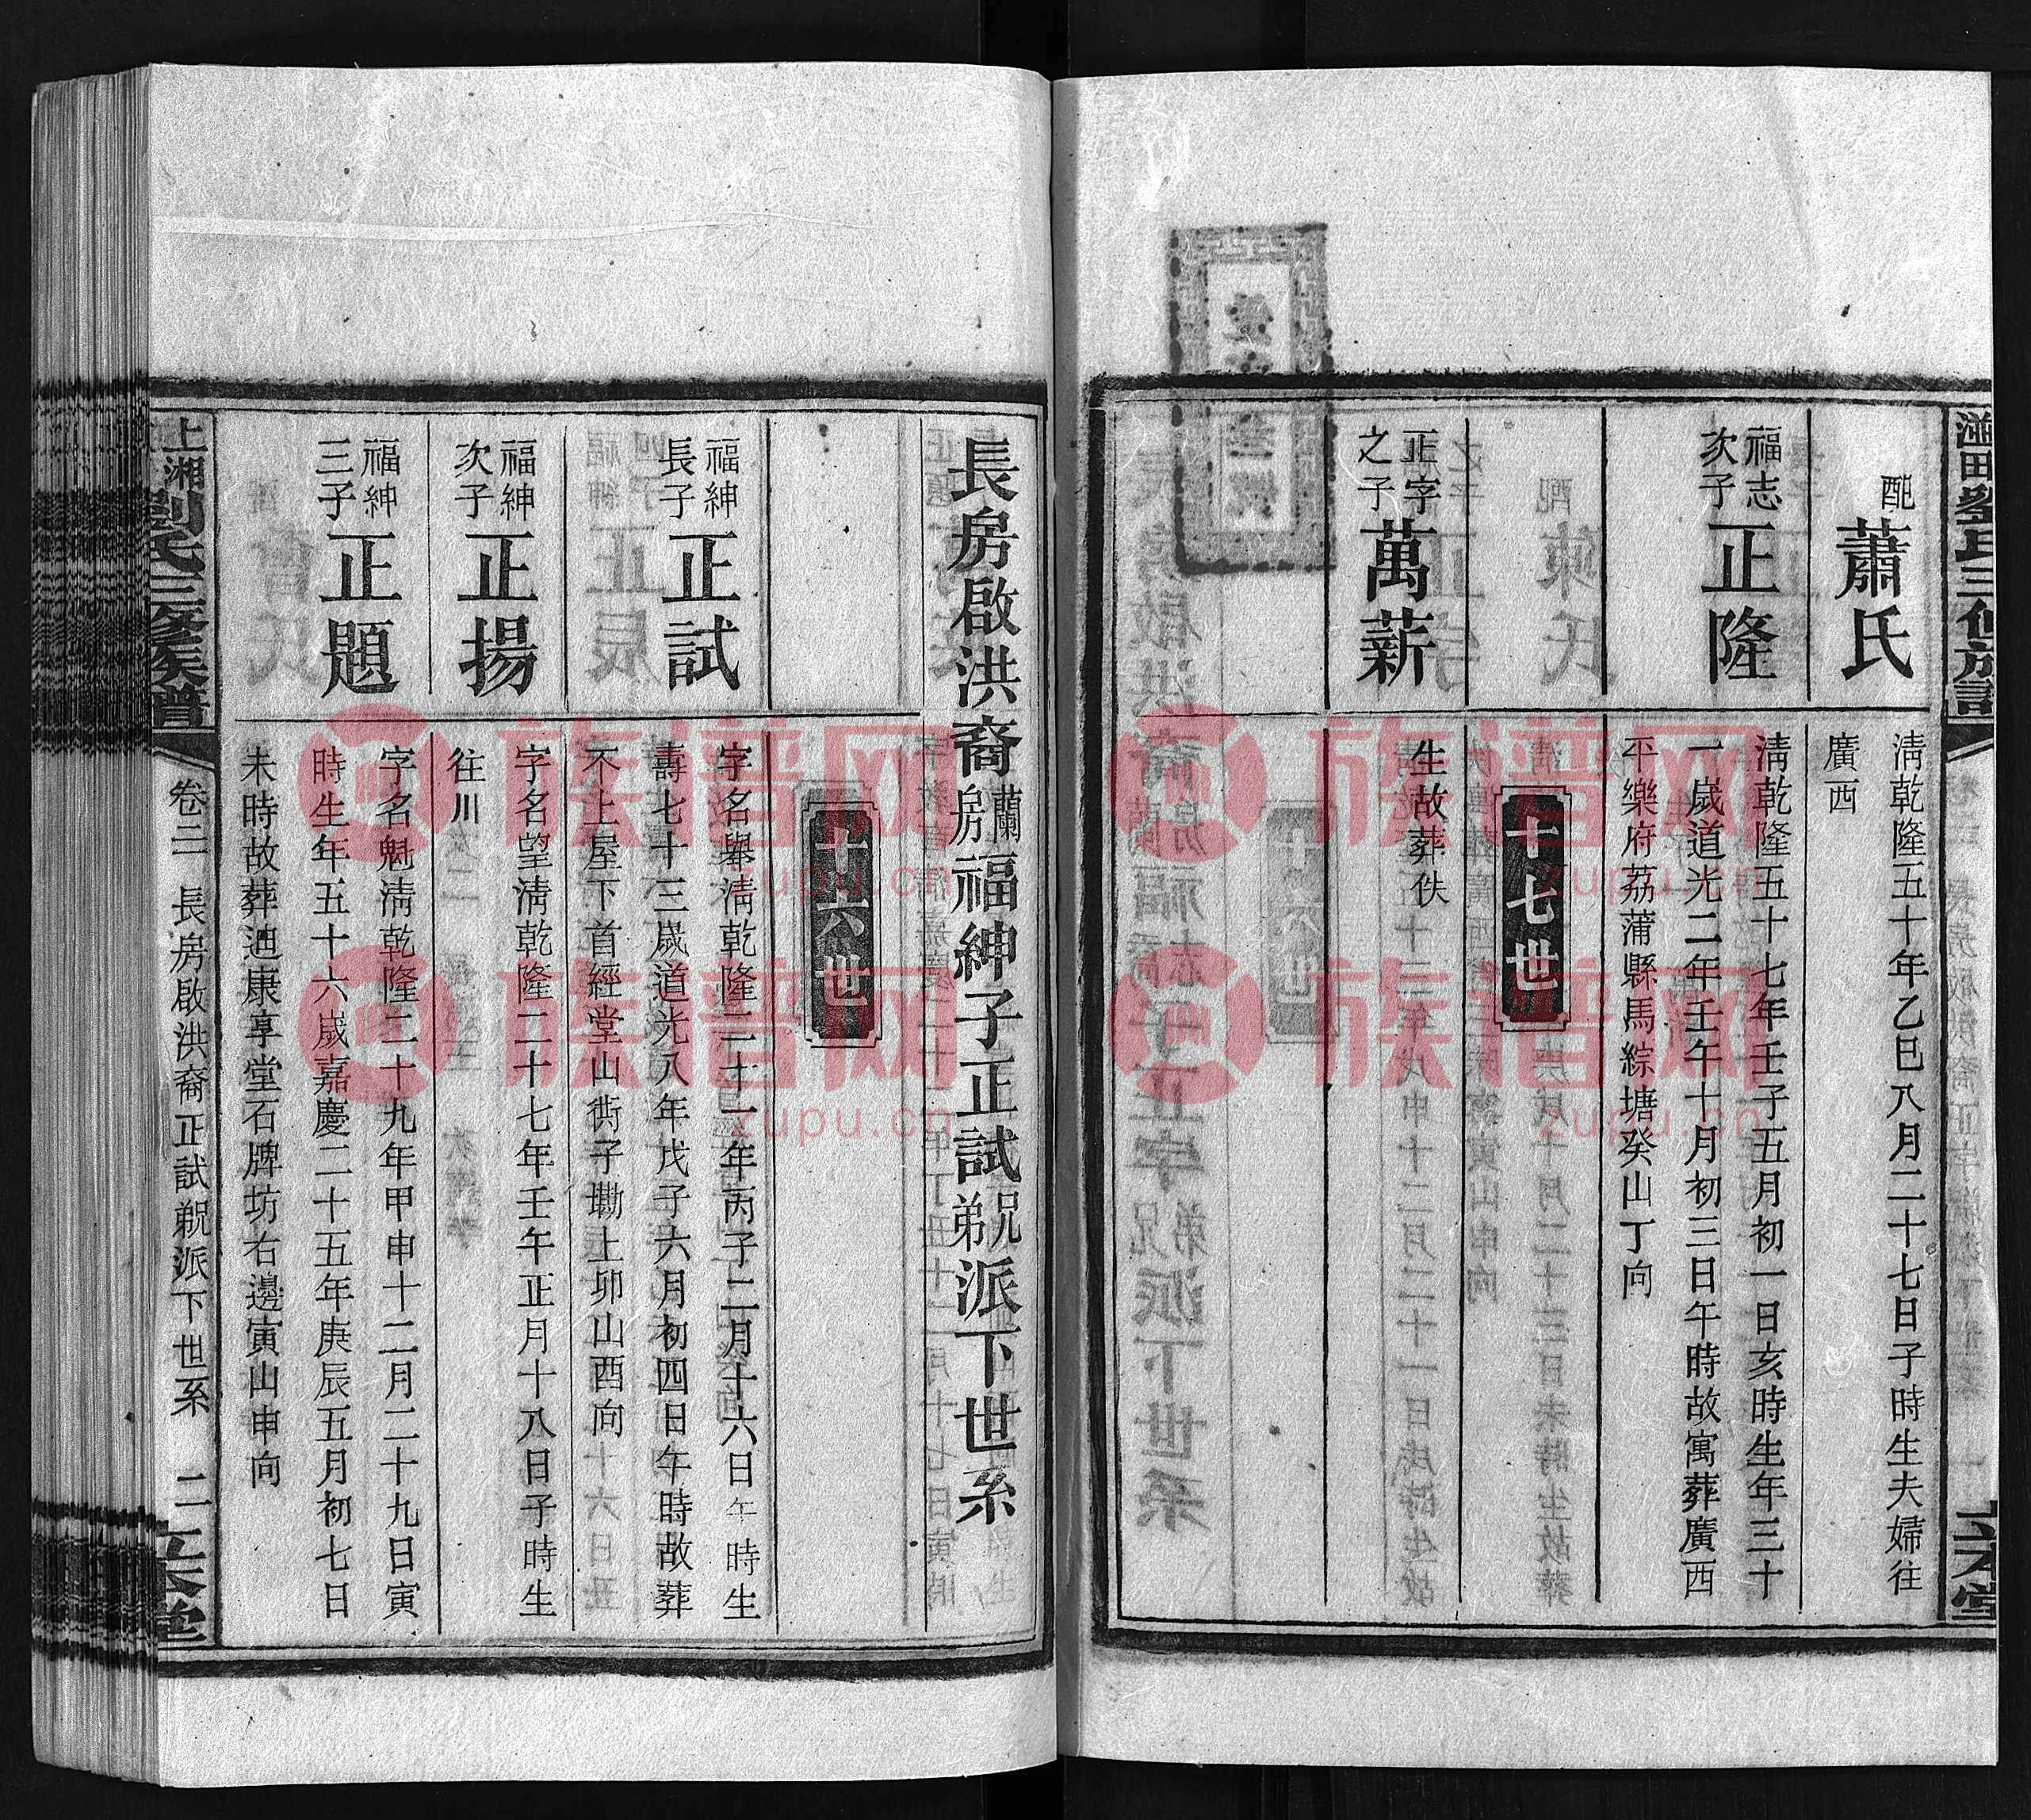 配
蕭氏
淸乾隆五十年乙巳八月二十七日子時生夫婦往
廣西
福志
次子
正隆
淸乾隆五十七年壬子五月初一日亥時生年三十
一歲道光二年壬午十月初三日午時故寓葬廣西
平樂府荔蒲縣馬綜塘癸山丁向
十七世
正字
之子
萬薪
生故葬佚
長房啟洪裔蘭房福紳子正試兄弟派下世系
十六世
福紳
長子
正試
字名舉淸乾隆二十一年丙子二月十六日午時生
壽七十三歲道光八年戊子六月初四日午時故葬
不上屋下首經堂山衖子㘭上卯山酉向
福紳
次子
正揚
字名望淸乾隆二十七年壬午正月十八日子時生
往川
福紳
三子
正題
字名魁淸乾隆二十九年甲申十二月二十九日寅
時生年五十六歲嘉慶二十五年庚辰五月初七日
未時故葬迪康享堂石牌坊右邊寅山申向
上湘劉氏三修族譜
卷二
長房啟洪裔正試兄弟派下世系
二
立本堂
族谱网
zupu.cn
族谱网
zupu.cn
族谱网
zupu.cn
族谱网
zupu.cn